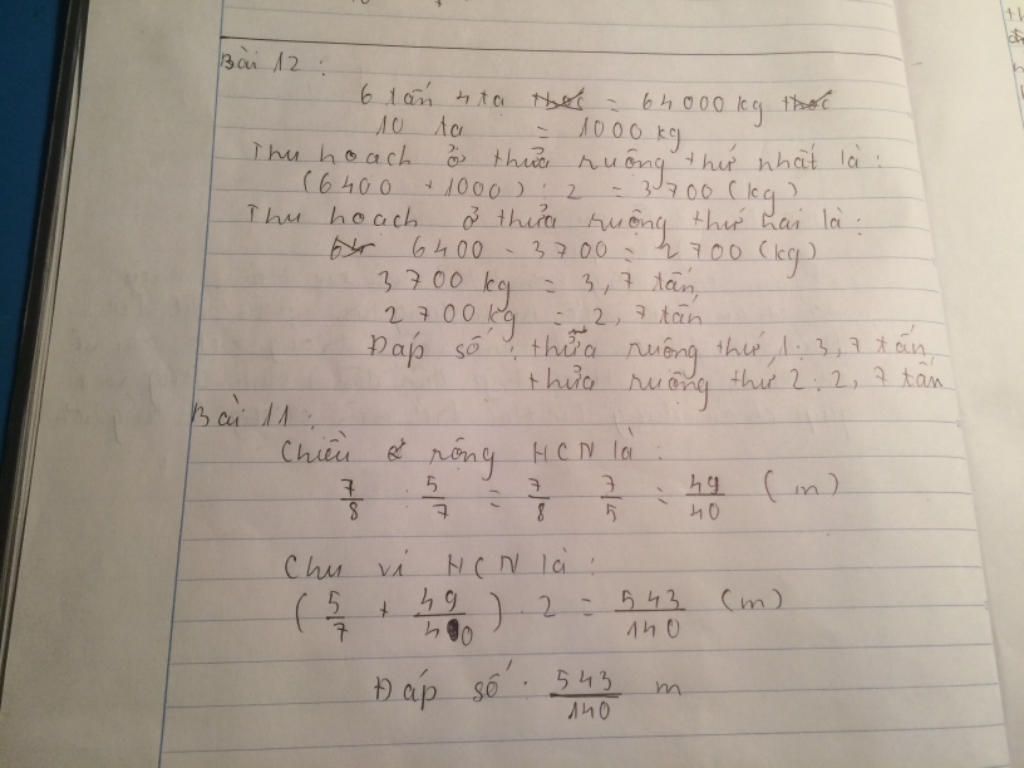 Bài 12 :
6 tấn 4 tạ = 64000 kg
10 tạ = 1000 kg
Thu hoạch ở thửa ruộng thứ nhất là :
(6400 + 1000) : 2 = 3700 (kg)
Thu hoạch ở thửa ruộng thứ hai là :
6400 - 3700 = 2700 (kg)
3700 kg = 3,7 tấn
2700 kg = 2,7 tấn
Đáp số : thửa ruộng thứ 1 : 3,7 tấn
thửa ruộng thứ 2 : 2,7 tấn
Bài 11 :
Chiều rộng HCN là :
7/8 : 5/7 = 7/8 7/5 = 49/40 (m)
Chu vi HCN là :
(5/7 + 49/40) . 2 = 543/140 (m)
Đáp số : 543/140 m